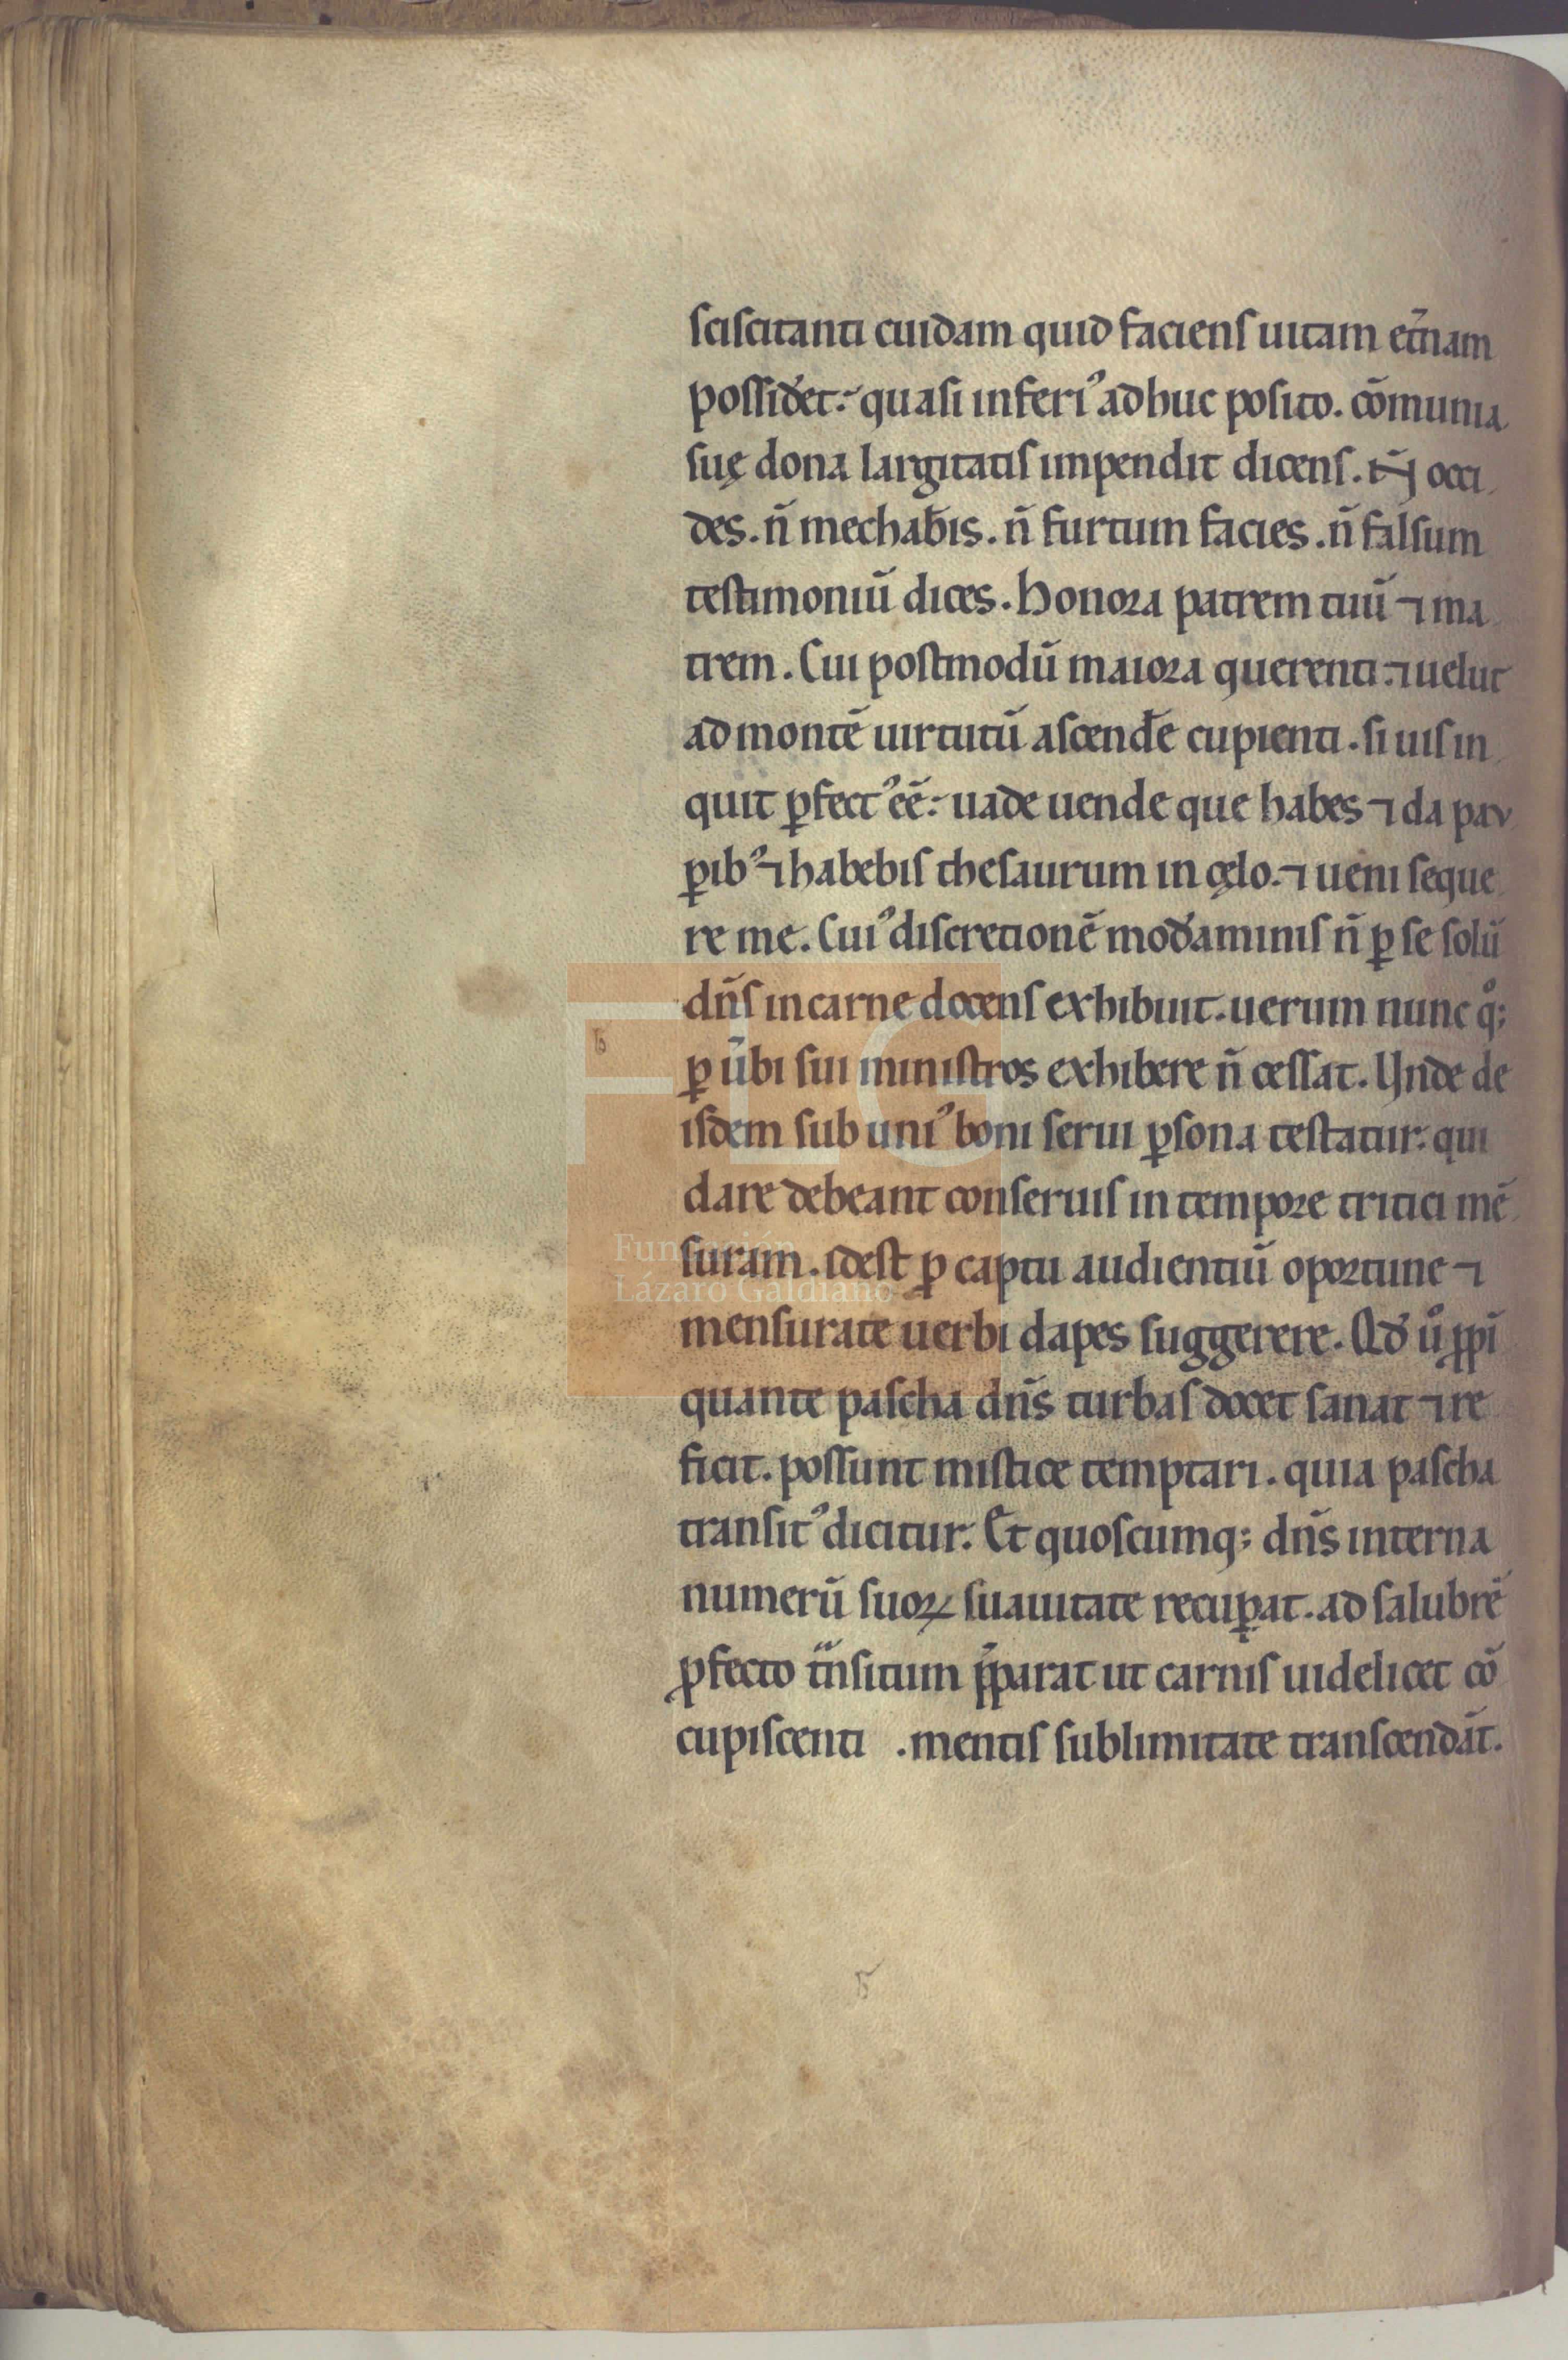 sciscitanti cuidam quid faciens uitam et̃nam
possid̾et: quasi inferi᾽ adhuc posito. cõmunia
suę dona largitatis inpendit dicens. Ñ occi
des. ñ mechab̾is. ñ furtum facies. ñ falsum
testimoniũ dices. Honora patrem tuũ ⁊ ma
trem. Cui postmodũ maiora querenti. ⁊ uelut
ad montẽ uirtutũ ascend̾e cupienti. si uis in
quit ꝑfect᾽ eẽ: uade uende que habes ⁊ da pau
ꝑib᾽ ⁊ habebis thesaurum in cęlo. ⁊ ueni seque
re me. Cui᾽ discretionẽ mod̾aminis ñ ꝑ se solũ
dñs in carne docens exhibuit. uerum nunc qͦ;
ꝑ ũbi sui ministros exhibere ñ cessat. Unde de
isdem sub uni᾽ boni serui ꝑsona testatur. qui
dare debeant conseruis in tempore tritici mẽ
suram. idest ꝓ captu audientiũ oportune ⁊
mensurate uerbi dapes suggerere. Qd̾ uͦ ꝓpĩ
quante pascha dñs turbas docet sanat ⁊ re
ficit. possunt mistice temptari. quia pascha
transit᾽ dicitur. Et quoscumq; dñs interna
numerũ suoꝝ suauitate recuꝑat. ad salubrẽ
ꝓfecto tᷓnsitum p̃parat ut carnis uidelicet cõ
cupiscenti . mentis sublimitate transcendãt.
FLG
Fundación
Lázaro Galdiano